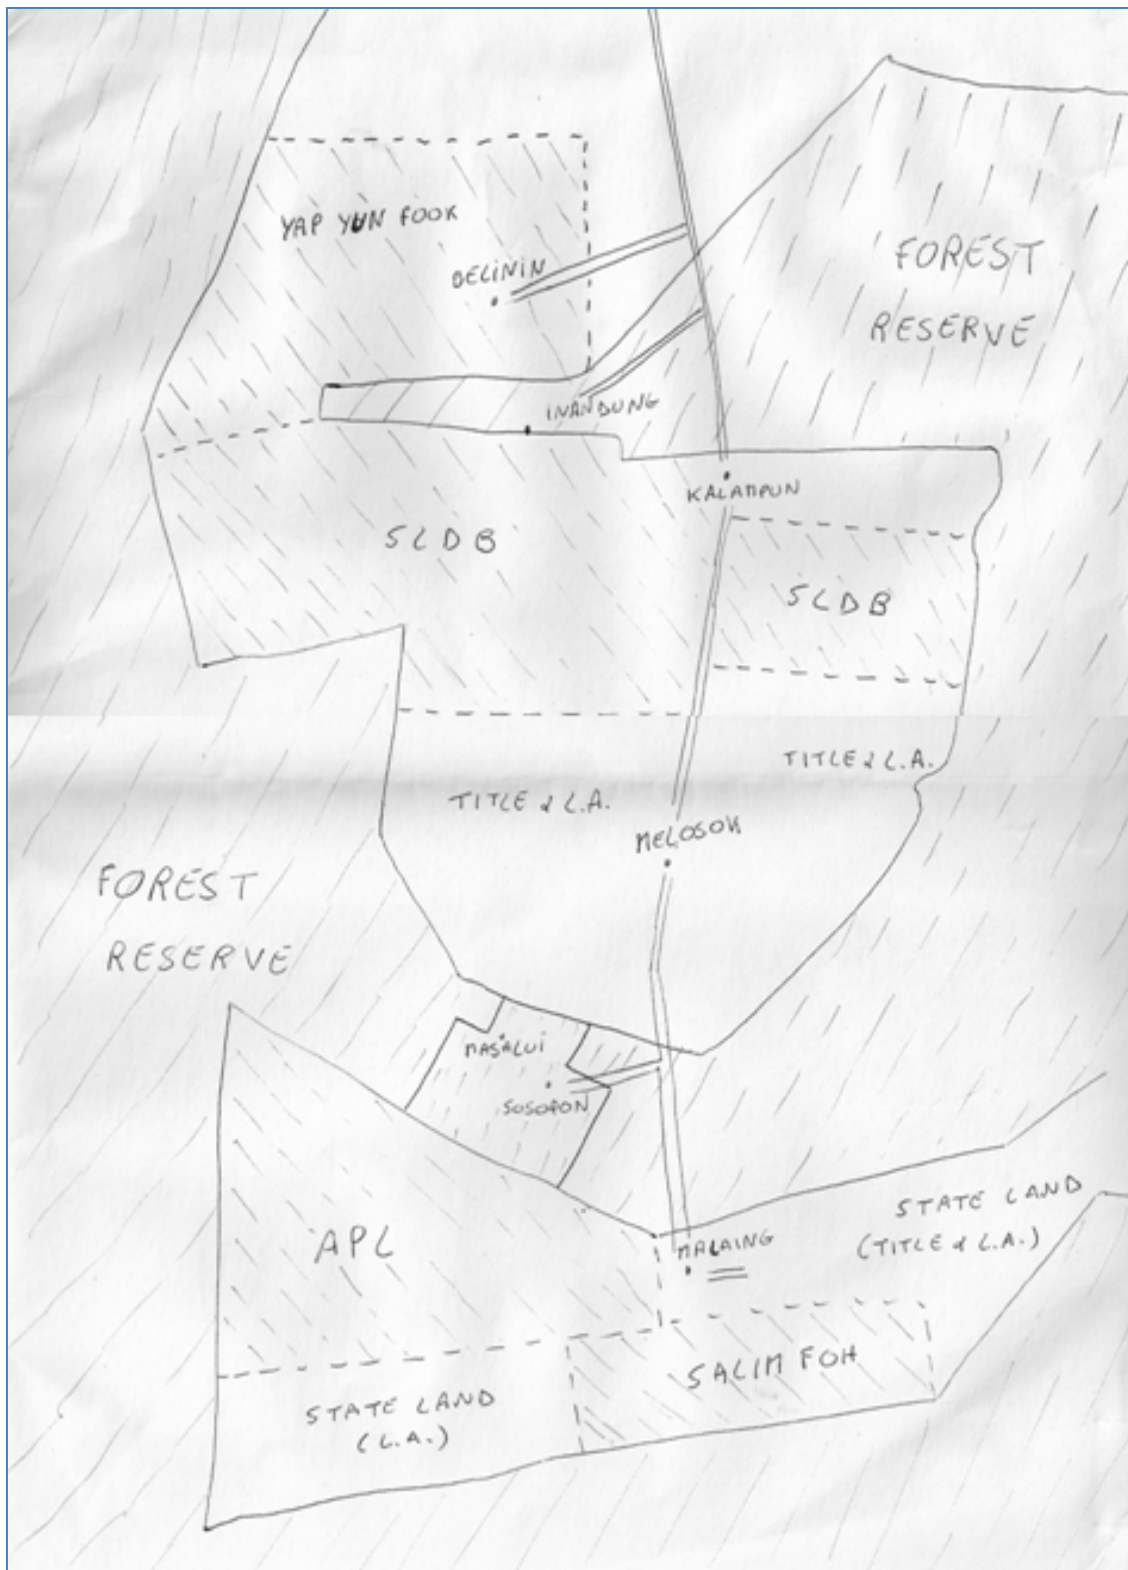 YAP YUN FOOK
DELININ
FOREST
RESERVE
INANDUNG
KALAMPUN
SLDB
SLDB
TITLE & L.A.
TITLE & L.A.
MELOSOK
FOREST
RESERVE
MASALUI
SOSOPON
STATE LAND
(TITLE & L.A.)
APL
MALAING
SALIM FOH
STATE LAND
(L.A.)